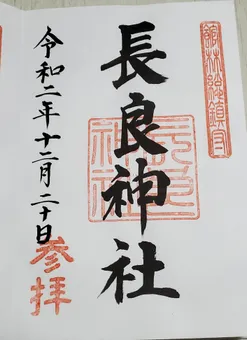 館林総鎮守
長良神社
令和二年十二月二十日
参拝